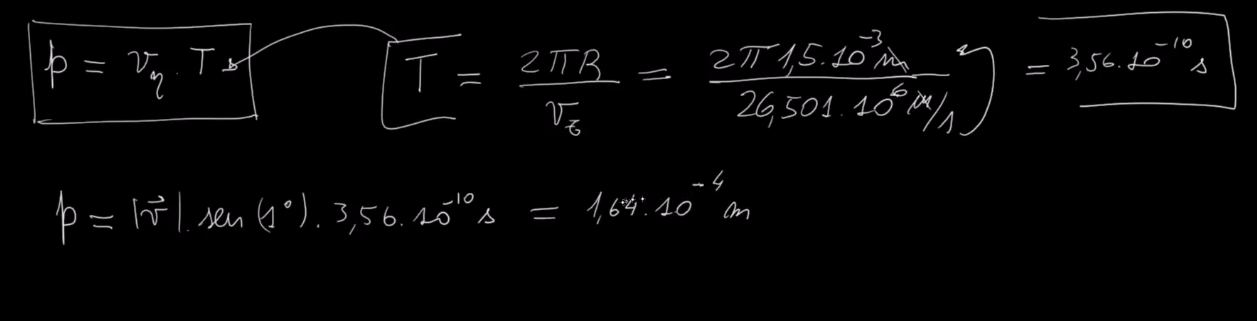 p = v_y . T = \frac{2πR}{v_z} = \frac{2π 1,5.10^{-3} m}{26,501.10^6 m/s} = 3,56.10^{-10} s
p = |\vec{v}| . sen(1°) . 3,56.10^{-10} s = 1,64.10^{-4} m